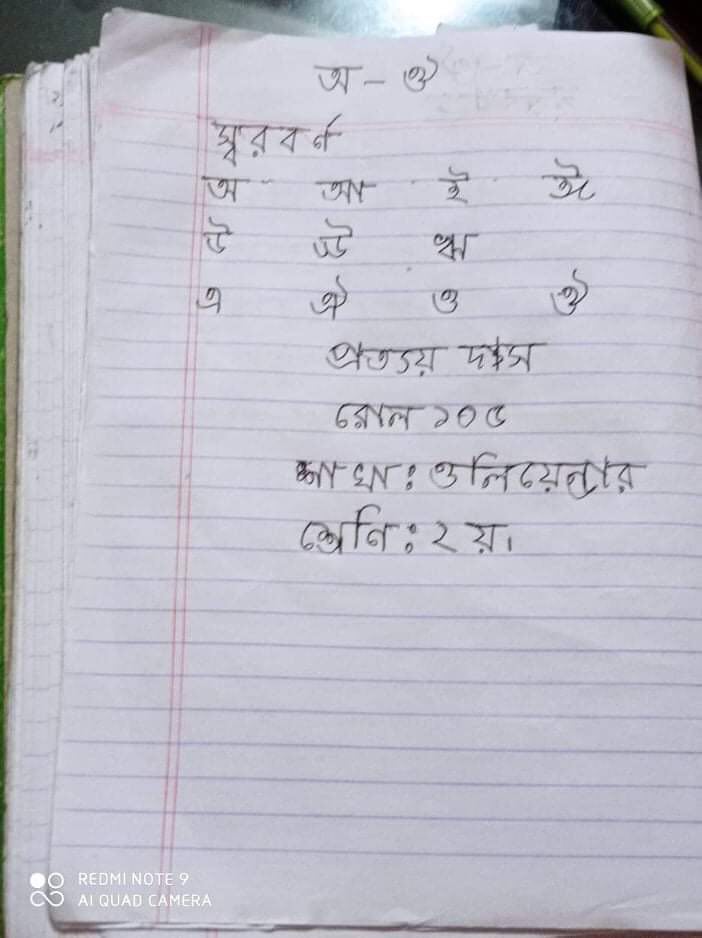 অ - ঔ
স্বরবর্ণ
অ আ ই ঈ
উ ঊ ঋ
এ ঐ ও ঔ
প্রত্যয় দাস
রোল ১০৫
শাখা: ওলিয়েন্ডার
শ্রেণি: ২য়।
REDMI NOTE 9
AI QUAD CAMERA